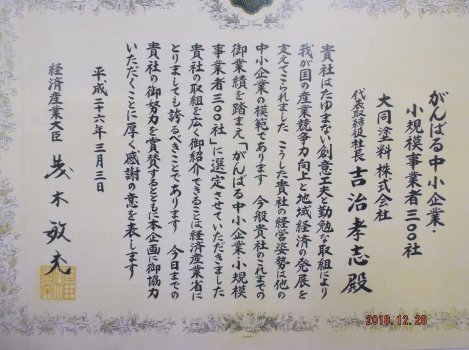 がんばる中小企業・
小規模事業者三〇〇社
大同塗料株式会社
代表取締役社長 吉治孝志殿
貴社はたゆまない創意工夫と勤勉な取組により
我が国の産業競争力向上と地域経済の発展を
支えてこられました こうした貴社の経営姿勢は他の
中小企業の模範であります 今般貴社のこれまでの
御業績を踏まえ「がんばる中小企業・小規模
事業者三〇〇社」に選定させていただきました
貴社の取組を広く御紹介できることは経済産業省に
とりましても誇るべきことであります 今日までの
貴社の御努力を賞賛するとともに本企画に御協力
いただくことに厚く感謝の意を表します
平成二十六年三月三日
経済産業大臣 茂木敏充
2018.12.26